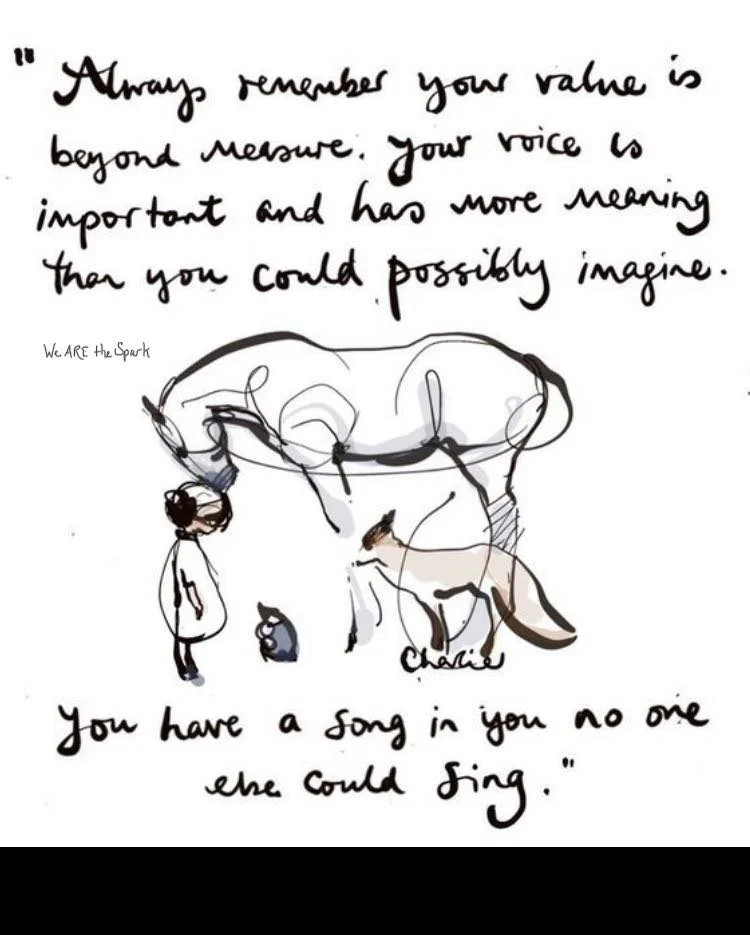 "Always remember your value is
beyond measure. Your voice is
important and has more meaning
than you could possibly imagine.
We ARE the Spark
Charlie
You have a song in you no one
else could sing."